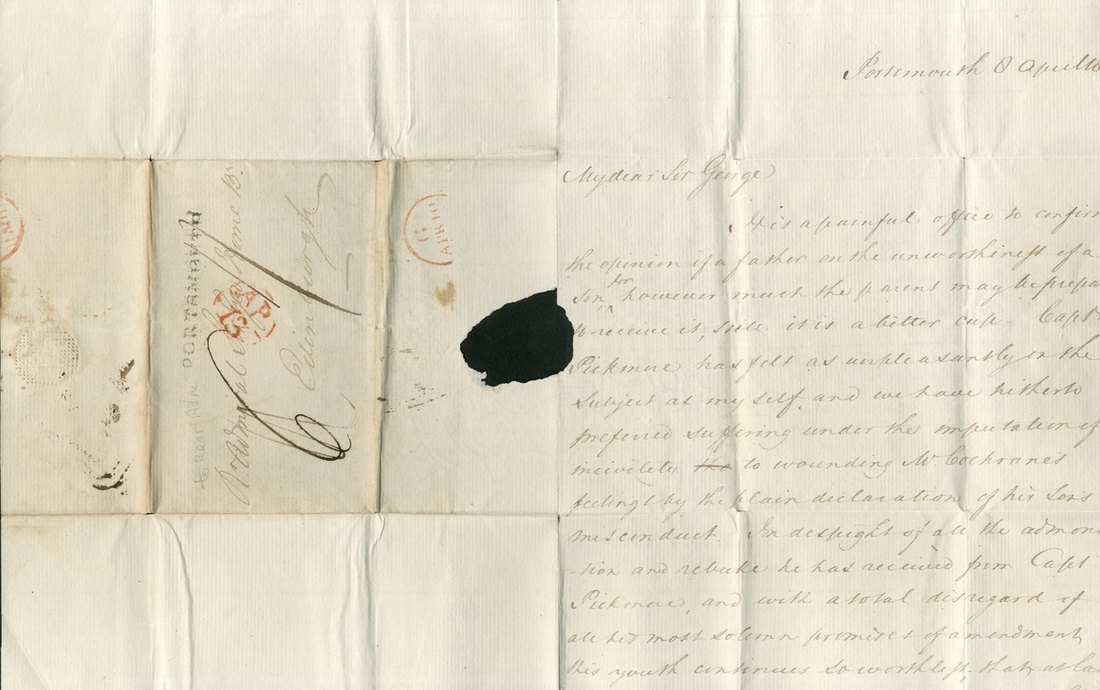 Portsmouth 8 April 18
My dear Sir George
It is a painful office to confirm
the opinion of a father on the unworthiness of a
Son, however much the parent may be prepa
for
to receive it, still it is a bitter cup. Capt
Pickmore has felt as unpleasantly on the
subject as myself, and we have hitherto
preferred suffering under the imputation of
incivility to wounding Mr Cochranes
feelings by the plain declaration of his Sons
misconduct. In despight of all the admoni
-tion and rebuke he has received from Capt
Pickmore, and with a total disregard of
all his most solemn promises of amendment,
this youth continues so worthless, that, at la
PORTSMOUTH
R. Admiral Sir George Home Bt
Edinburgh
APR
AP